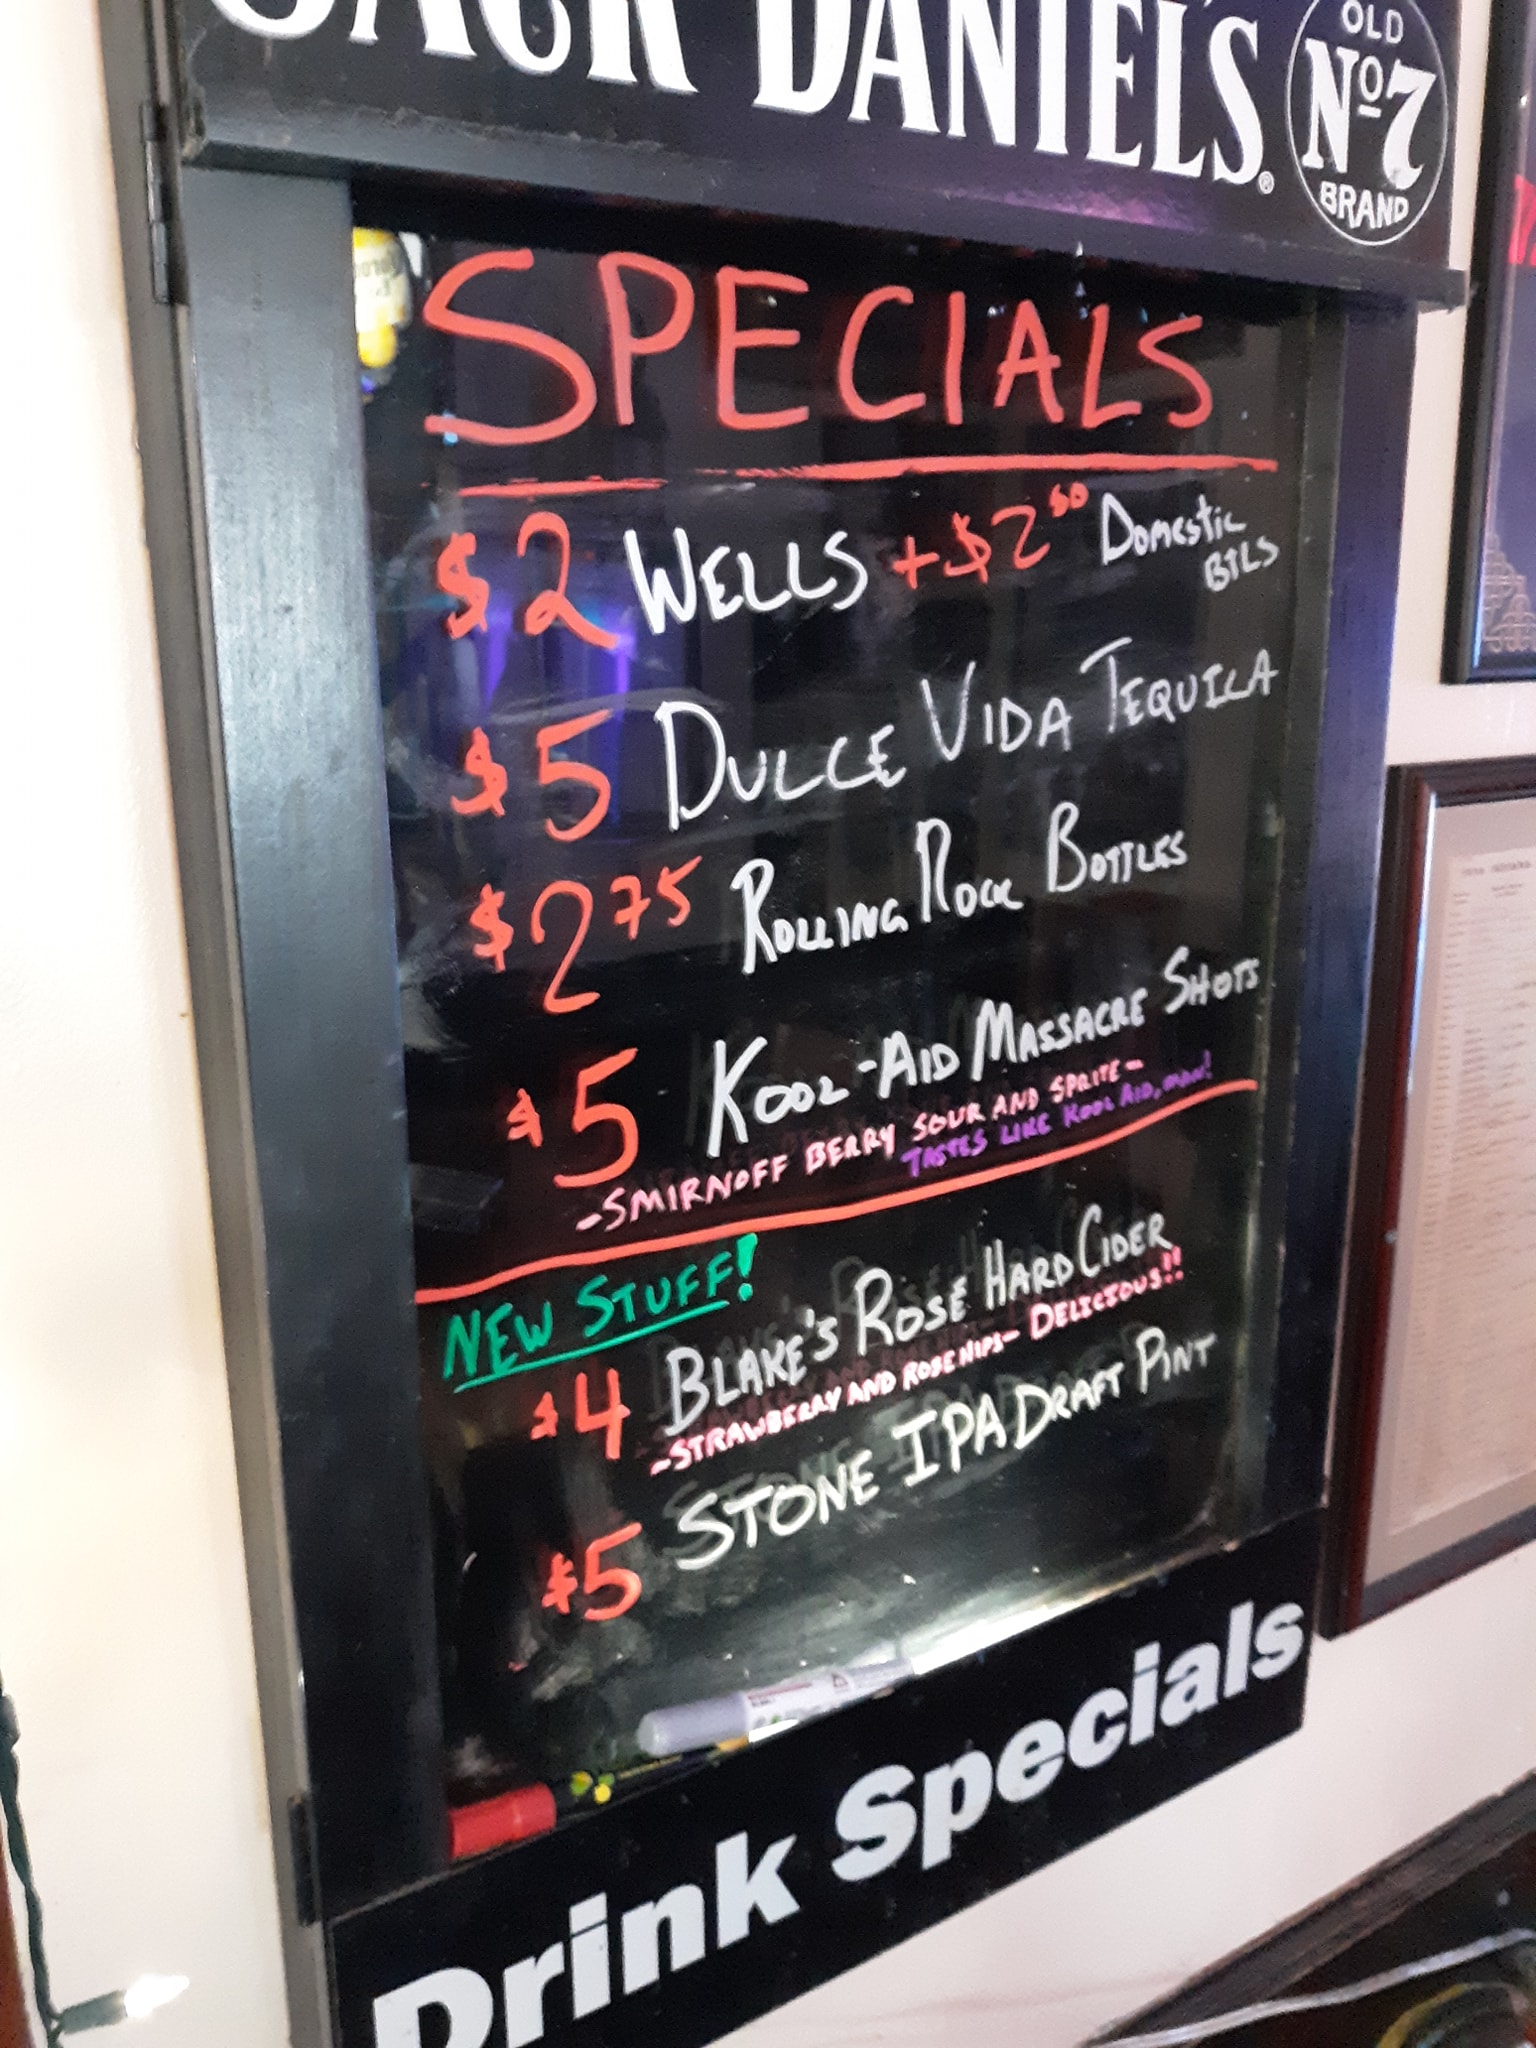 JACK DANIEL'S®
OLD
No7
BRAND
SPECIALS
$2 WELLS + $2 50 DOMESTIC
BTLS
$5 DULCE VIDA TEQUILA
$2 75 ROLLING ROCK BOTTLES
$5 KOOL-AID MASSACRE SHOTS
-SMIRNOFF BERRY SOUR AND SPRITE-
TASTES LIKE KOOL AID, MAN!
NEW STUFF!
$4 BLAKE'S ROSÉ HARD CIDER
-STRAWBERRY AND ROSE HIPS- DELICIOUS!!
$5 STONE IPA DRAFT PINT
Drink Specials